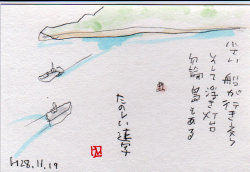 小さい 船が行き交う
そして浮き灯台
勿論 島もある
たのしい遠景
H28.11.19